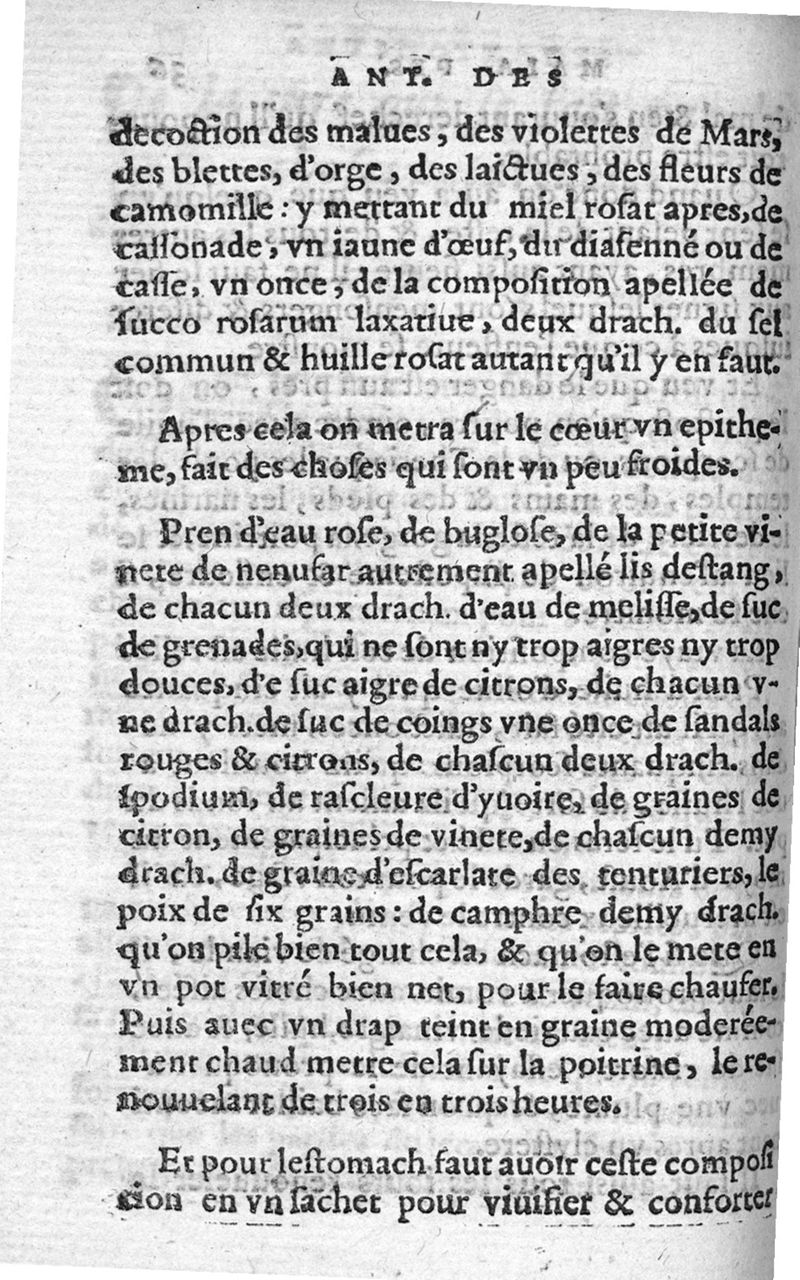 ANT. DES
decoction des malues, des violettes de Mars,
des blettes, d'orge, des laictues, des fleurs de
camomille: y mettant du miel rosat apres, de
cassonade, vn iaune d'œuf, du diasenné ou de
casse, vn once, de la composition apellée de
succo rosarum laxatiue, deux drach. du sel
commun & huille rosat autant qu'il y en faut.
Apres cela on metra sur le cœur vn epithe-
me, fait des choses qui sont vn peu froides.
Pren d'eau rose, de buglose, de la petite vi-
nete de nenufar autrement apellé lis destang,
de chacun deux drach. d'eau de melisse, de suc
de grenades, qui ne sont ny trop aigres ny trop
douces, d'e suc aigre de citrons, de chacun v-
ne drach. de suc de coings vne once de sandals
rouges & citrons, de chascun deux drach. de
spodium, de rascleure d'yuoire, de graines de
citron, de graines de vinete, de chascun demy
drach. de graine d'escarlate des tenturiers, le
poix de six grains: de camphre demy drach.
qu'on pile bien tout cela, & qu'on le mete en
vn pot vitré bien net, pour le faire chaufer.
Puis auec vn drap teint en graine moderée-
ment chaud metre cela sur la poitrine, le re-
nouuelant de trois en trois heures.
Et pour lestomach faut auoir ceste composi
tion en vn sachet pour viuifier & conforter